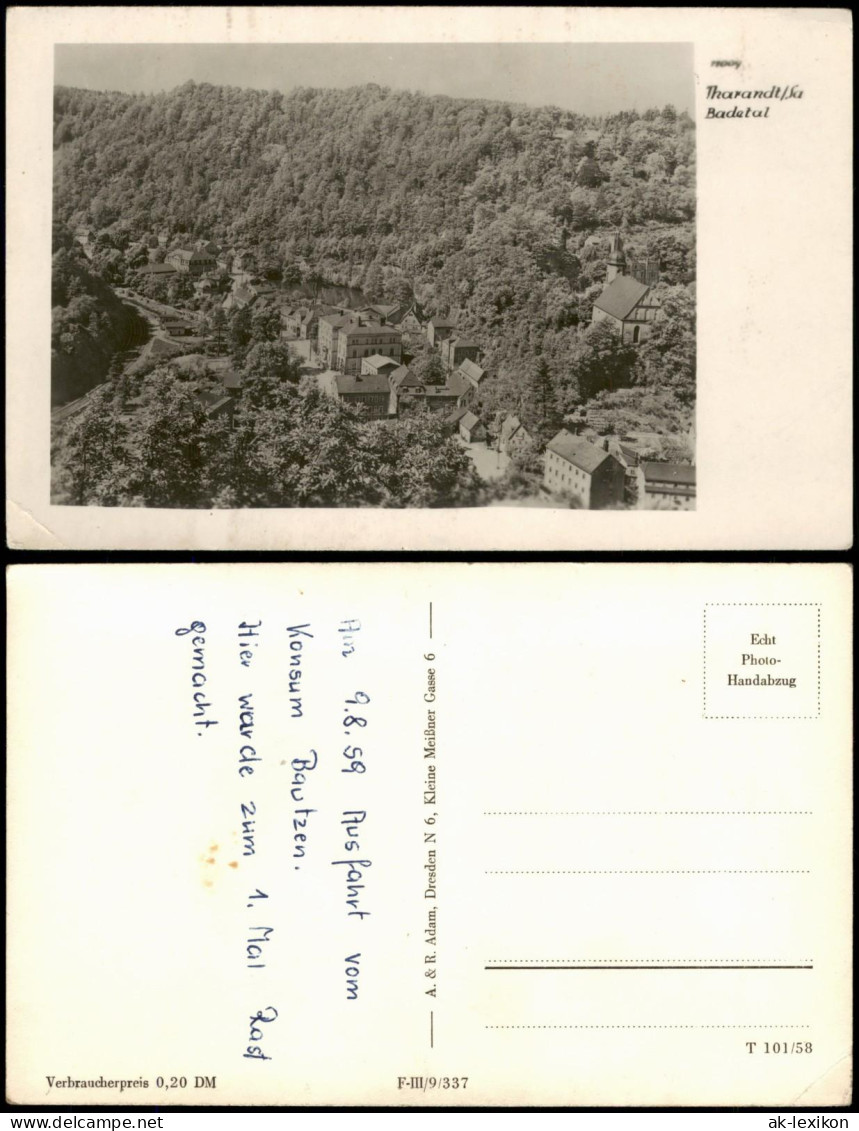 Tharandt/Sa
Badetal
Am 9.8.59 Ausfahrt vom
Konsum Bautzen.
Hier wurde zum 1. Mal Rast
gemacht.
A. & R. Adam, Dresden N 6, Kleine Meißner Gasse 6
Echt
Photo-
Handabzug
T 101/58
Verbraucherpreis 0,20 DM
F-III/9/337
www.delcampe.net
ak-lexikon